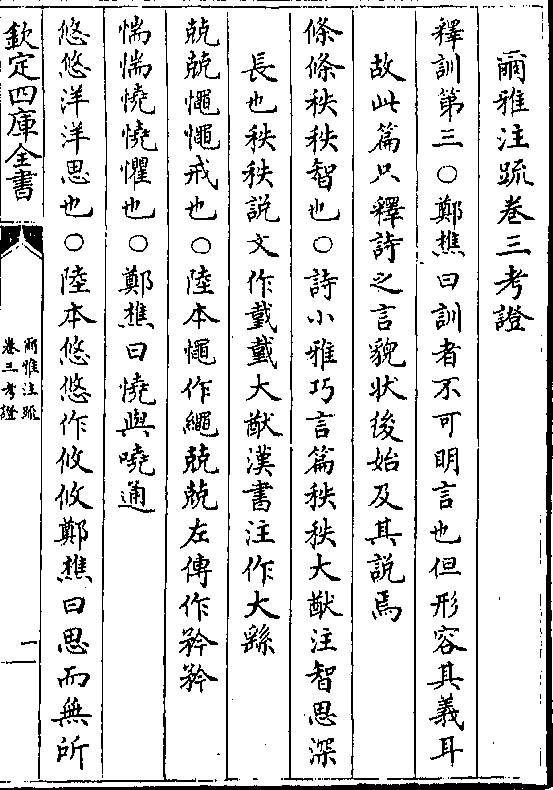 爾雅注疏卷三考證
釋訓第三○鄭樵曰訓者不可明言也但形容其義耳
故此篇只釋詩之言貌狀後始及其說焉
條條秩秩智也○詩小雅巧言篇秩秩大猷注智思深
長也秩秩說文作𢧤𢧤大猷漢書注作大繇
兢兢憴憴戒也○陸本憴作繩兢兢左傳作矜矜
惴惴憢憢懼也○鄭樵曰憢與嘵通
悠悠洋洋思也○陸本悠悠作攸攸鄭樵曰思而無所
欽定四庫全書
爾雅注疏
卷三考證
一